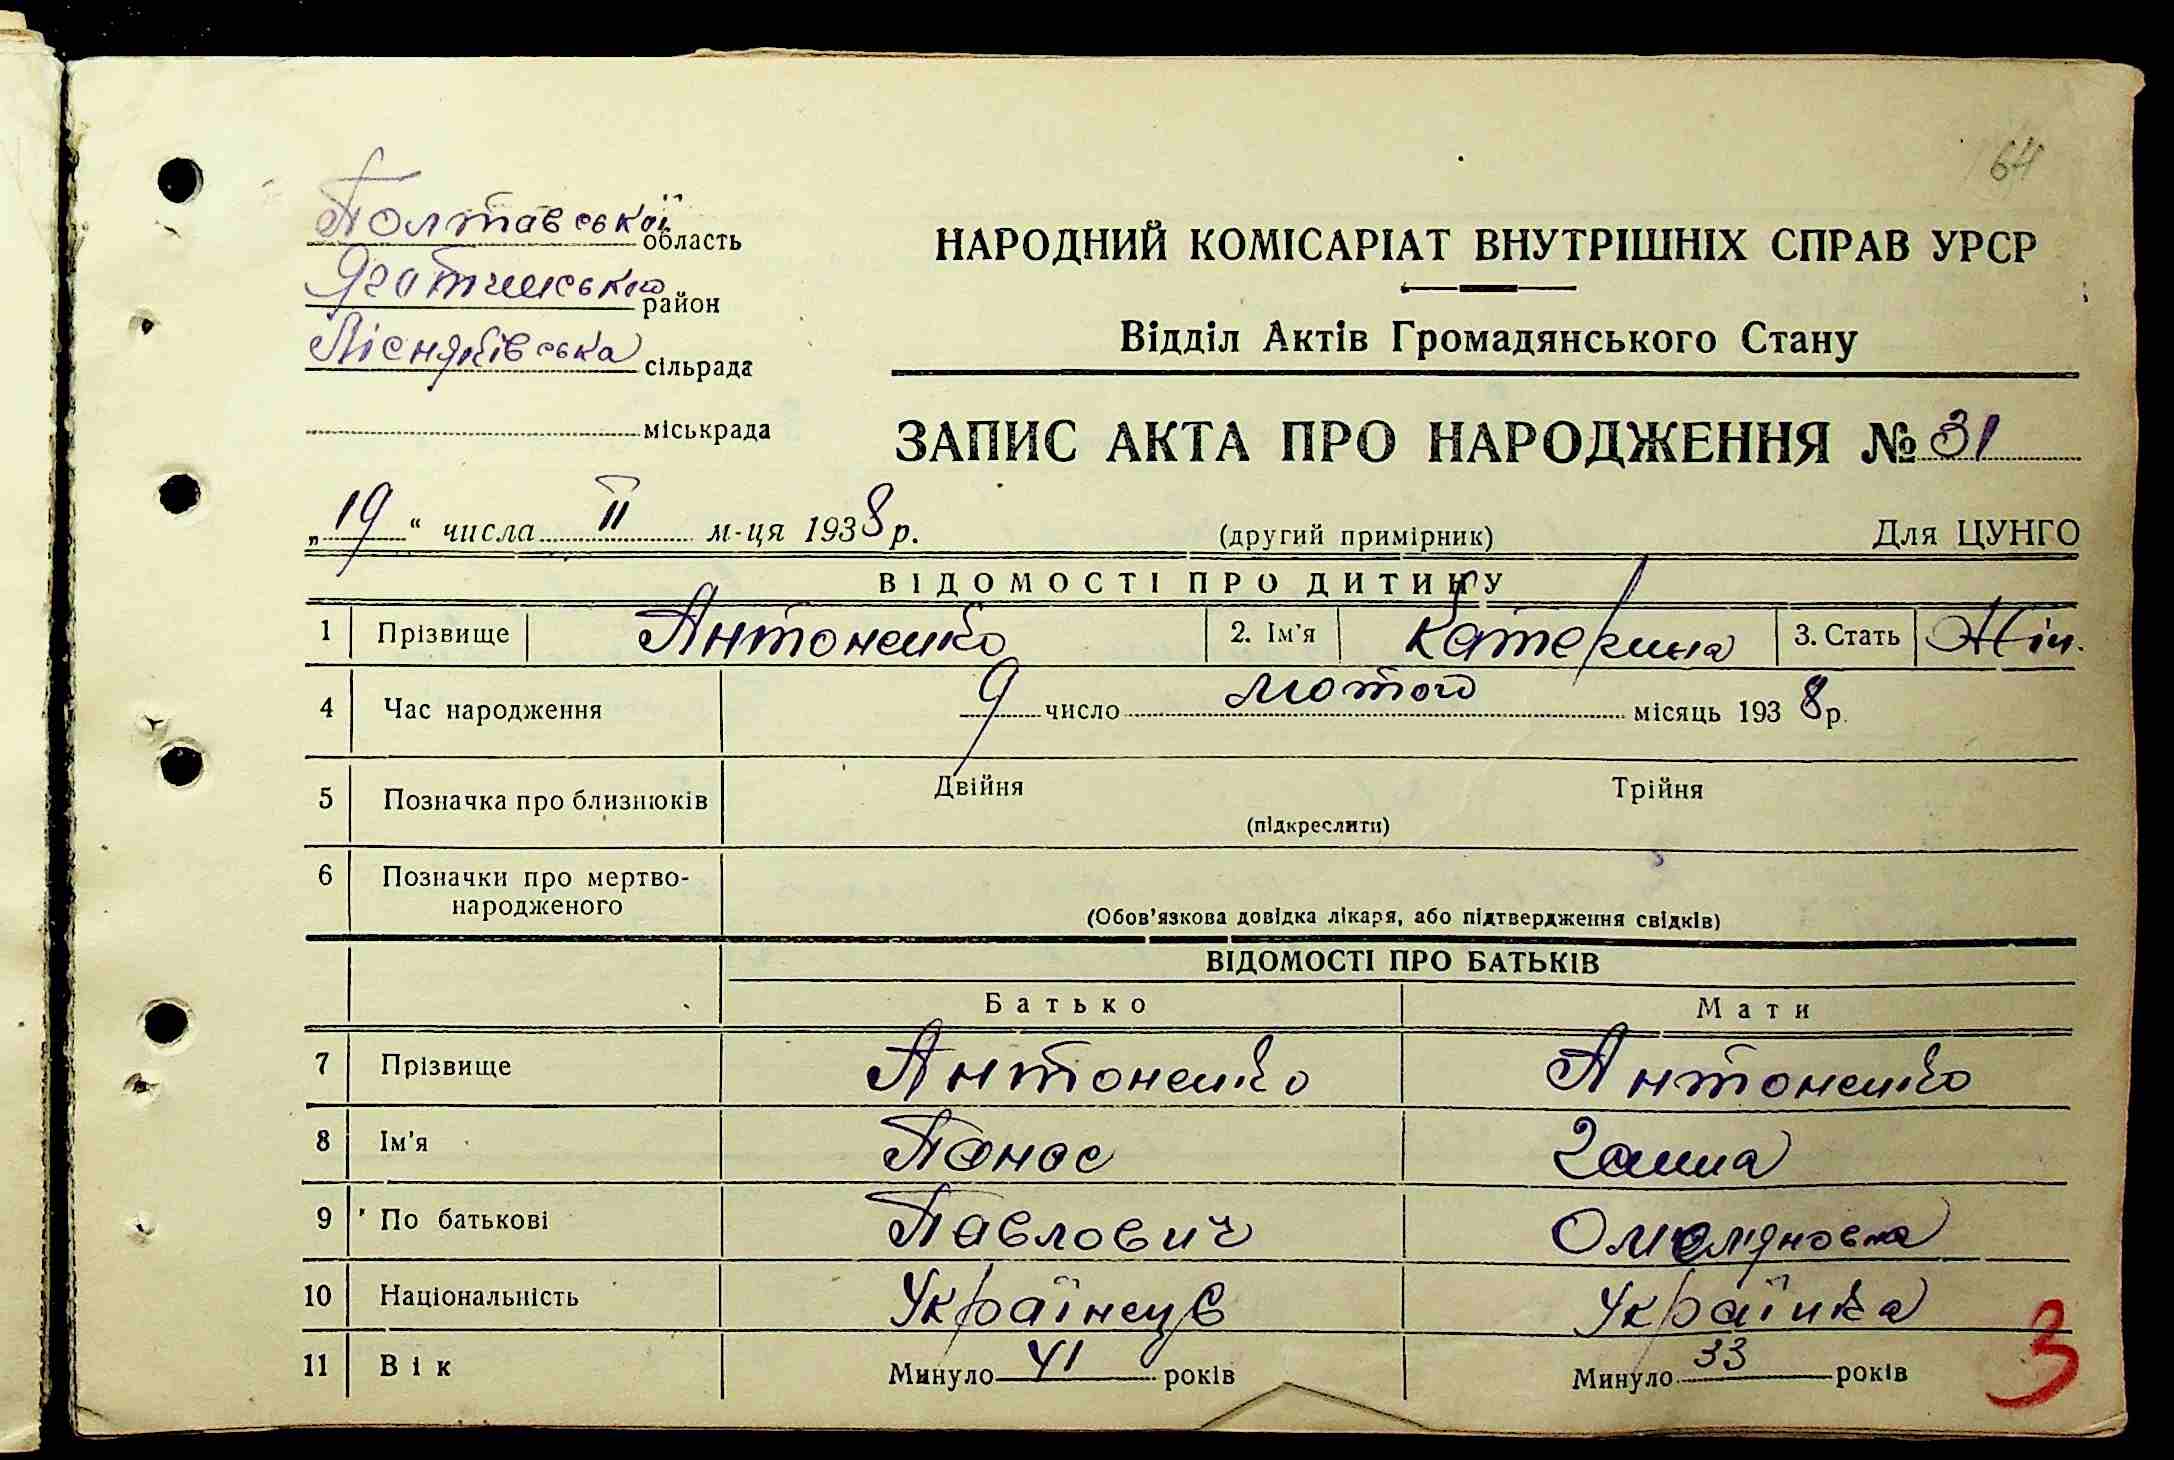 64
Полтавської область
Яготинсько район
Лісняківська сільрада
міськрада
НАРОДНИЙ КОМІСАРІАТ ВНУТРІШНІХ СПРАВ УРСР
Відділ Актів Громадянського Стану
ЗАПИС АКТА ПРО НАРОДЖЕННЯ № 31
„19“ числа II м-ця 1938 р. (другий примірник) Для ЦУНГО
ВІДОМОСТІ ПРО ДИТИНУ
1 Прізвище Антоненко 2. Ім'я Катерина 3. Стать Жін.
4 Час народження 9 число лютого місяць 1938 р.
5 Позначка про близнюків Двійня Трійня
(підкреслити)
6 Позначки про мертво-
народженого
(Обов'язкова довідка лікаря, або підтвердження свідків)
ВІДОМОСТІ ПРО БАТЬКІВ
Батько Мати
7 Прізвище Антоненко Антоненко
8 Ім'я Панас Ганна
9 По батькові Павлович Омеляновна
10 Національність Українець Українка
11 Вік Минуло 41 років Минуло 33 років
3